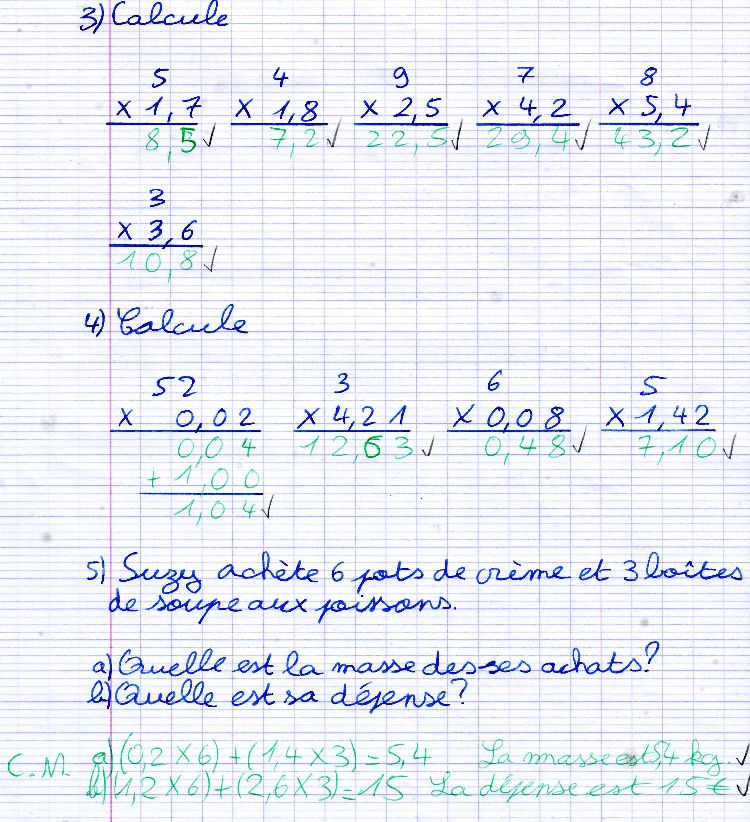 3) Calcule
5 4 9 7 8
x 1,7 x 1,8 x 2,5 x 4,2 x 5,4
8,5 ✓ 7,2 ✓ 22,5 ✓ 29,4 ✓ 43,2 ✓
3
x 3,6
10,8 ✓
4) Calcule
52 3 6 5
x 0,02 x 4,21 x 0,08 x 1,42
0,04 12,63 ✓ 0,48 ✓ 7,10 ✓
+ 1,00
1,04 ✓
5) Suzy achète 6 pots de crème et 3 boîtes
de soupe aux poissons.
a) Quelle est la masse des ses achats?
b) Quelle est sa dépense?
C.M. a) (0,2 x 6) + (1,4 x 3) = 5,4 La masse est 5,4 kg. ✓
b) (1,2 x 6) + (2,6 x 3) = 15 La dépense est 15 € ✓